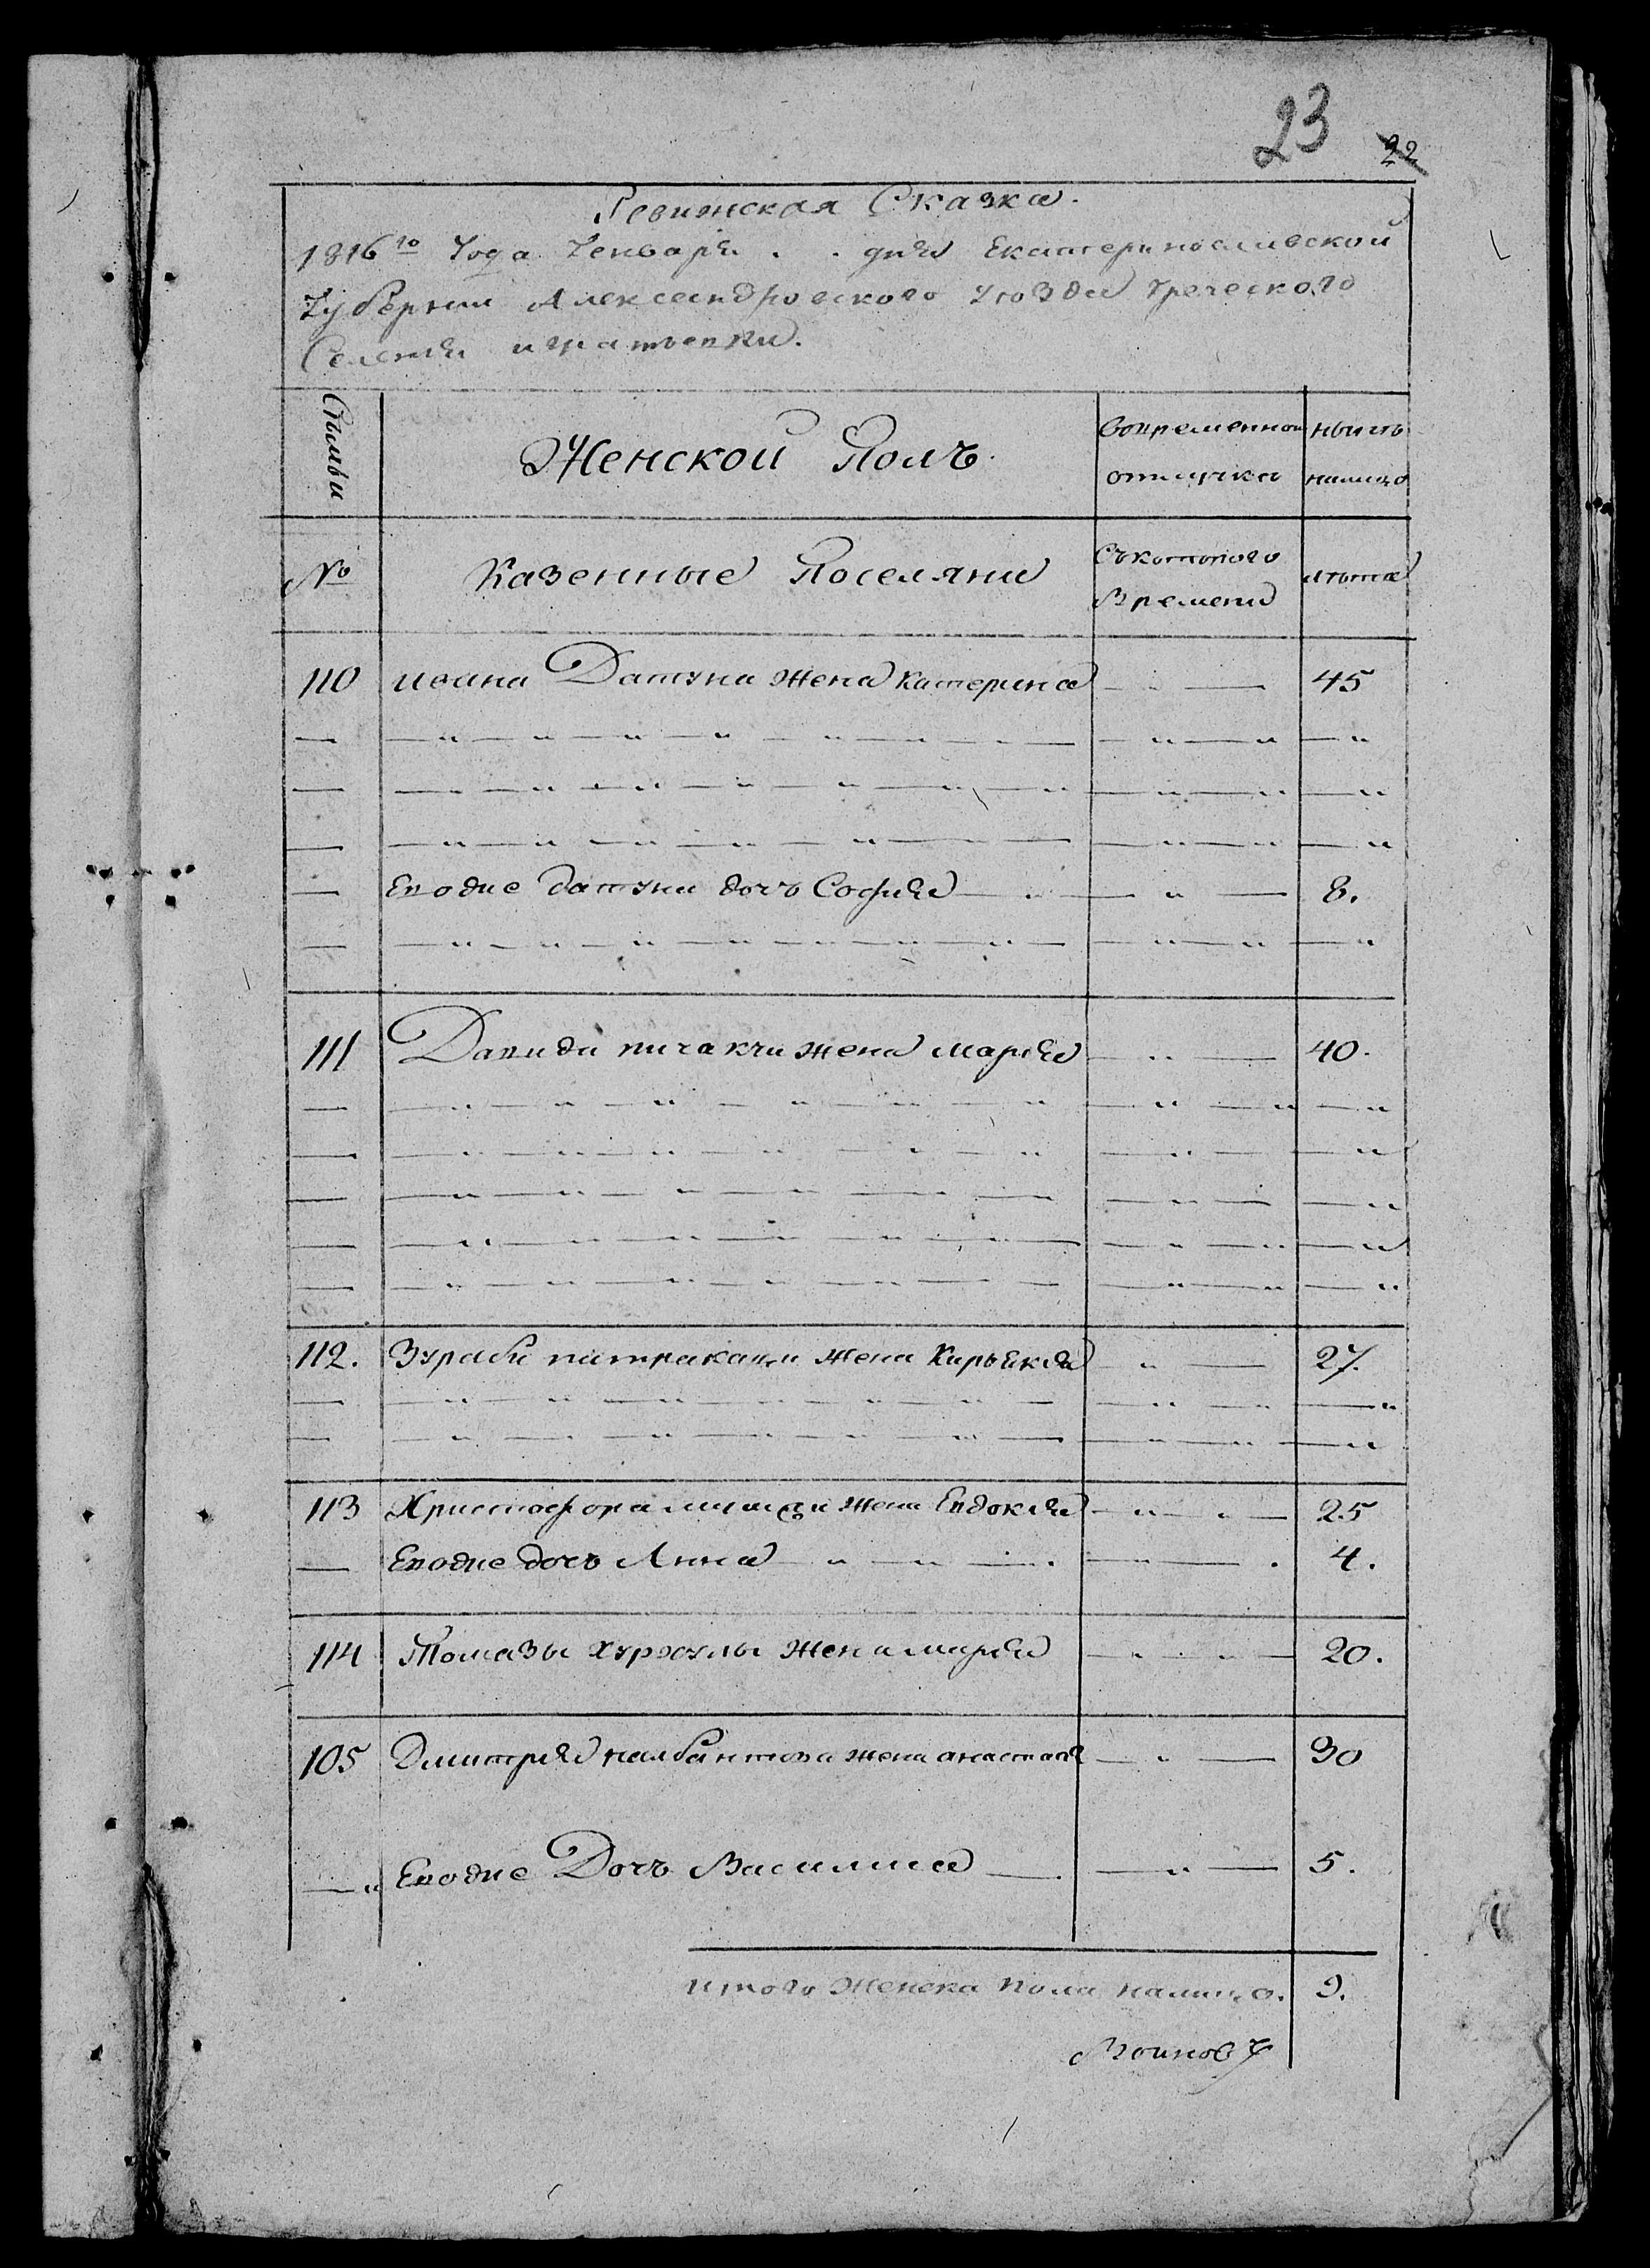 23 22
Ревижская Сказка.
1816го Года Генваря . . дня Екатеринославской
Губернии Александровского уюзда Греческого
Селения игнатьевки.
Сѣмьи
Женской Полъ.
вовременной отлучке
нынѣ налицо
№
Казенные Поселяни
Съкоторого Времени
лѣта
110 ивана Датуна жена катерина — 45
— Еводие датуни дочь София — 8.
111 Давиди пичакчи жена мария — 40.
112. Зураби патракаци жена Кирьякия — 27.
113 Христофора жена Евдокия — 25
— Еводие дочъ Анна — 4.
114 Томазы хурхулы жена мария — 20.
105 Дмитрия налбантова жена анастаси — 30
— Еводие Дочъ Василиса — 5.
итого женска пола налицо. 9.